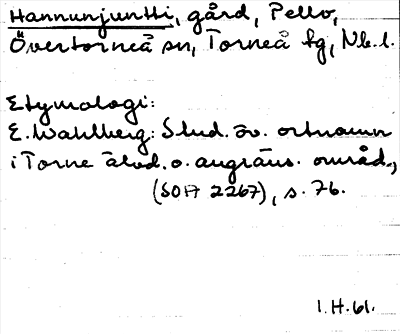 Hannunjuntti, gård, Pello,
Övertorneå sn, Torneå fg, Nb.l.
Etymologi:
E. Wahlberg: Stud. öv. ortnamn
i Torne älvd. o. angräns. områd.,
(SOA 2267), s. 76.
I.H. 61.